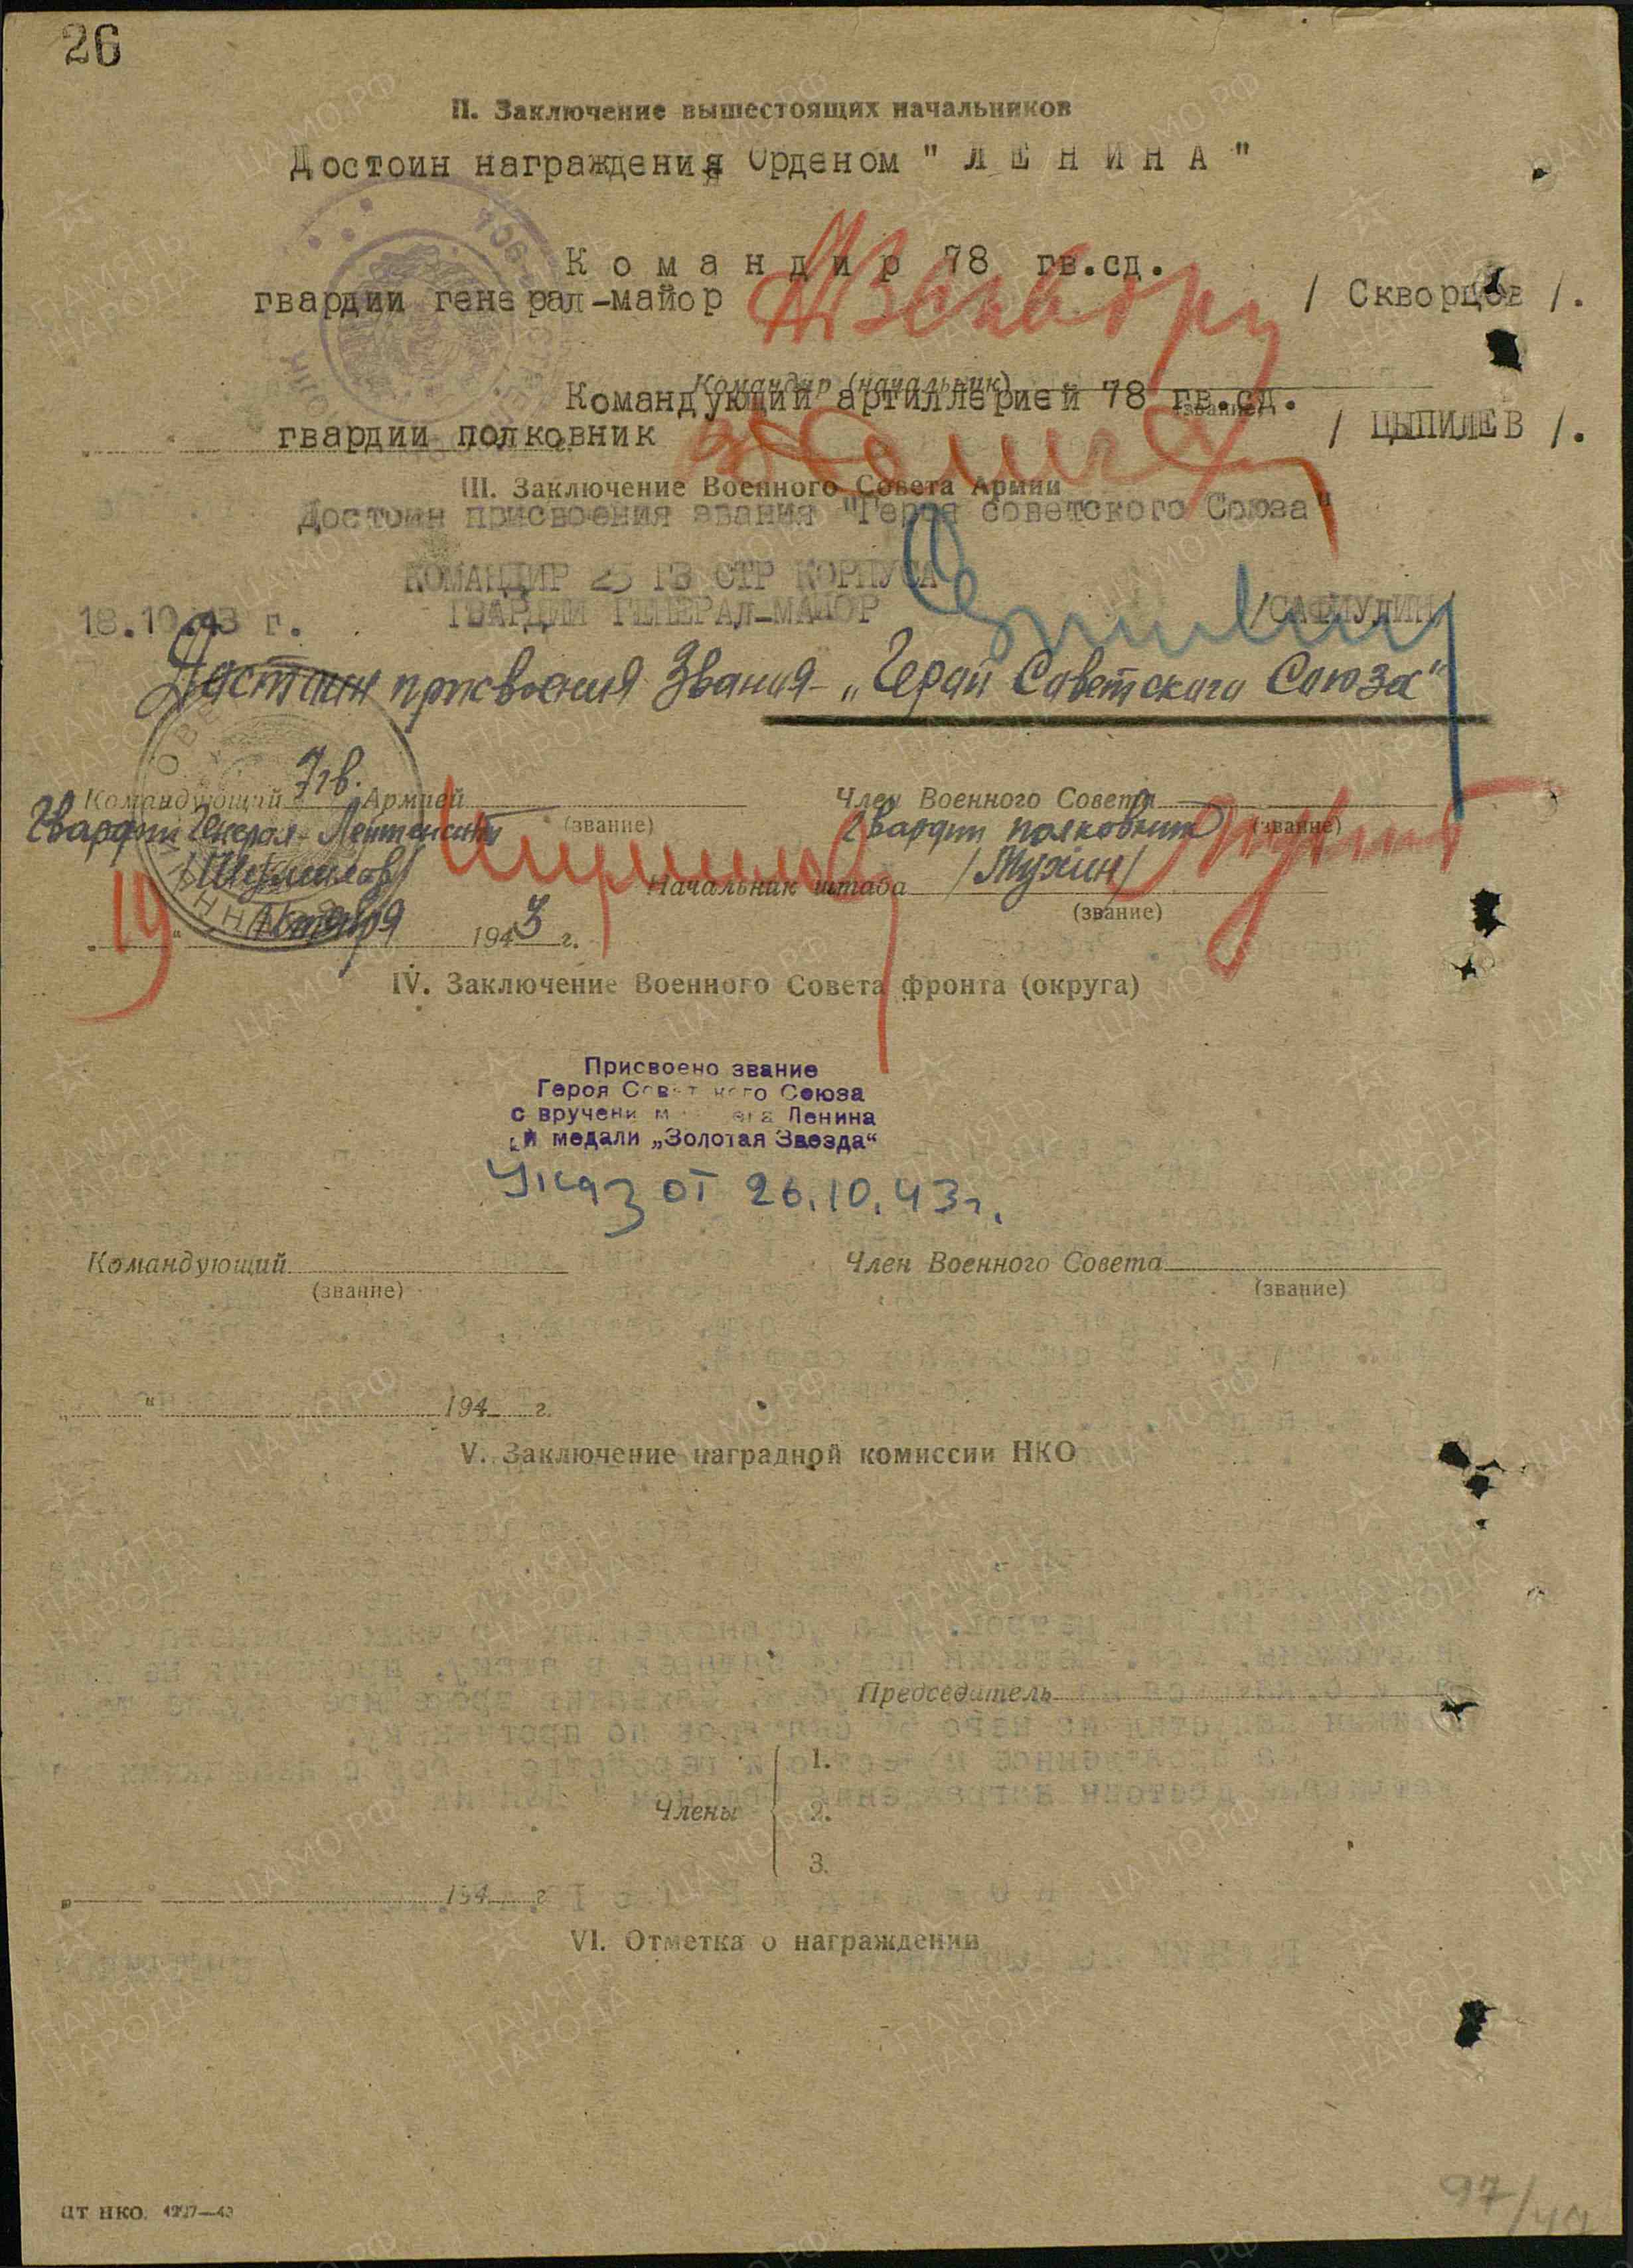 26
II. Заключение вышестоящих начальников
Достоин награждения Орденом " Л Е Н И Н А "
К о м а н д и р 78 гв.сд.
гвардии генерал-майор / Скворцов /.
Командир (начальник)
(звание)
Командующий артиллерией 78 гв.сд.
гвардии полковник / ЦЫПИЛЕВ /.
III. Заключение Военного Совета Армии
Достоин присвоения звания "Героя советского Союза"
КОМАНДИР 25 ГВ СТР КОРПУСА
ГВАРДИИ ГЕНЕРАЛ-МАЙОР /САФИУЛИН/
18.10.43 г.
Достоин присвоения Звания - „Герой Советского Союза"
Командующий 7 гв. Армией Член Военного Совета
Гвардии Генерал-Лейтенант (звание) Гвардии полковник (звание)
/Шумилов/ Начальник штаба /Мухин/
(звание)
19 " октября 1943 г.
IV. Заключение Военного Совета фронта (округа)
Присвоено звание
Героя Советского Союза
с вручением Ленина
и медали „Золотая Звезда"
Указ от 26.10.43г.
Командующий Член Военного Совета
(звание) (звание)
„ " 194 г.
V. Заключение наградной комиссии НКО
Председатель
1.
Члены 2.
3.
„ " 194 г.
VI. Отметка о награждении
ЦТ НКО. 1227—43
97/
ПАМЯТЬ НАРОДА
ЦАМО.РФ